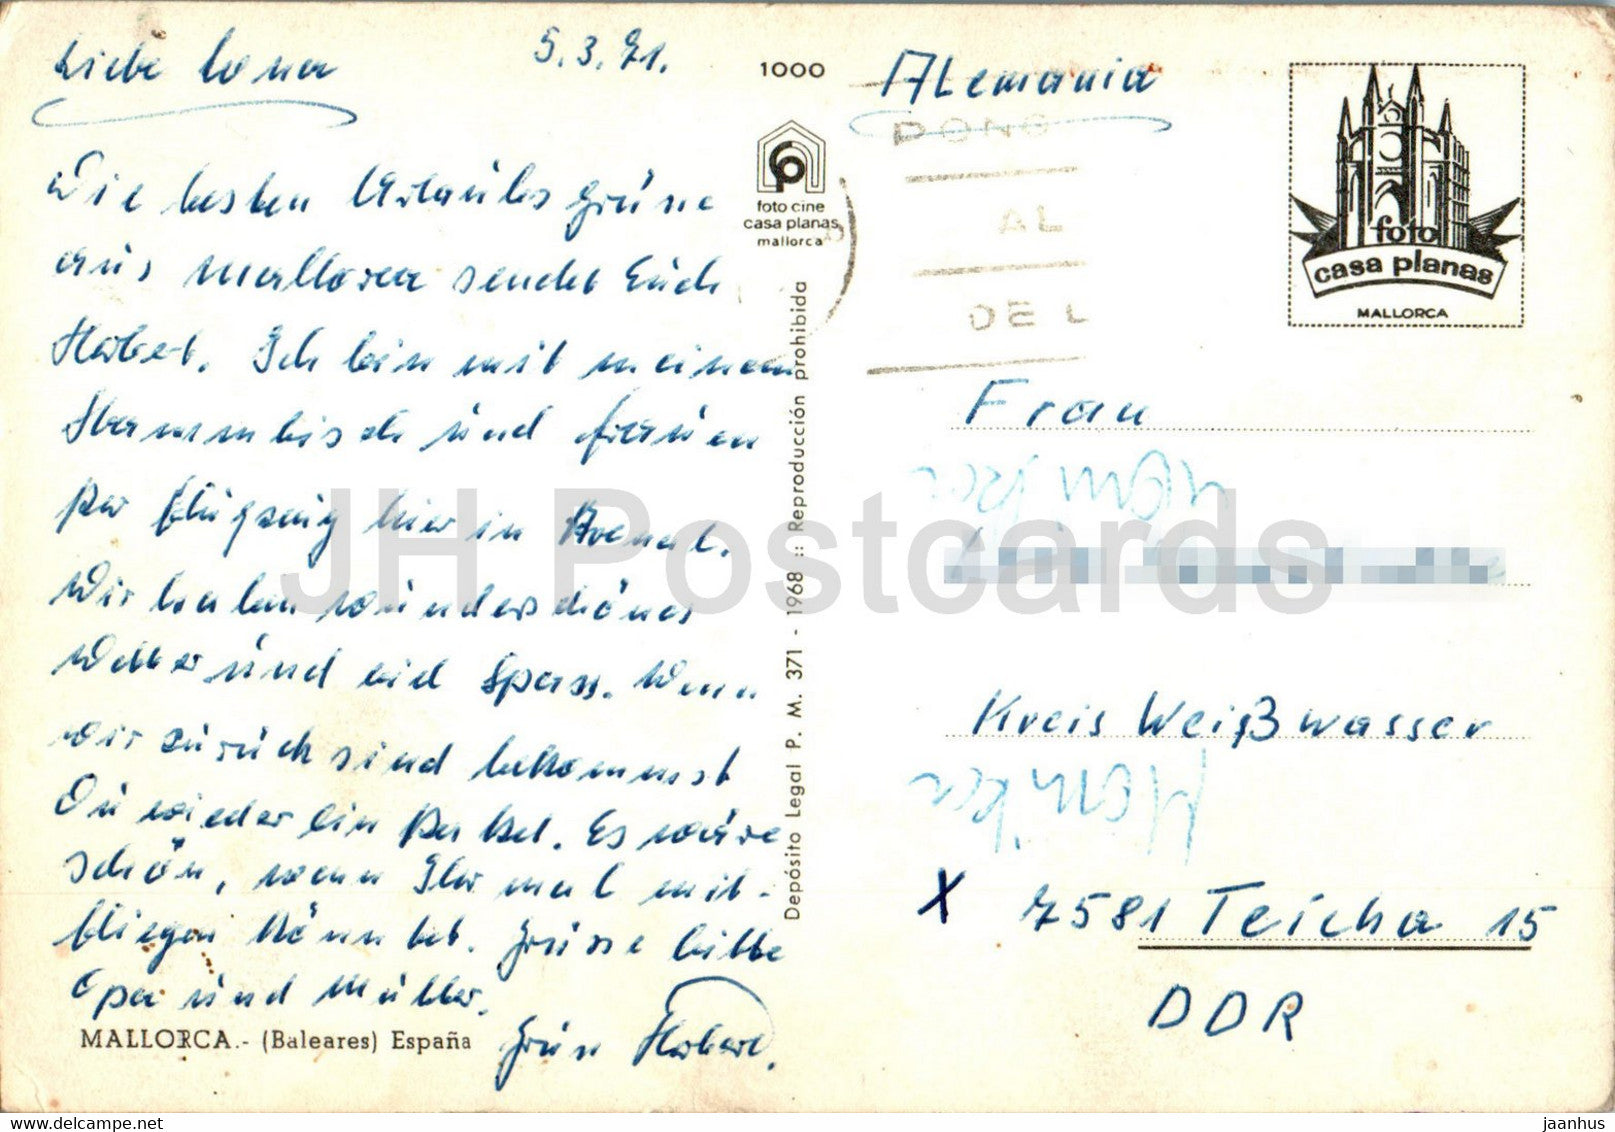 Liebe Lona
5.3.71.
Die besten Urlaubsgrüsse
aus Mallorca sendet Euch
Herbert. Ich bin mit meinem
Stammtisch und Frauen
per Flugzeug hier in Arenal.
Wir haben wunderschönes
Wetter und viel Spass. Wenn
wir zurück sind bekommst
Du wieder ein Paket. Es wäre
schön, wenn Ihr mal mit-
fliegen könntet. Grüsse bitte
Opa und Mutter.
Gruss Herbert.
MALLORCA.- (Baleares) España
1000
foto cine
casa planas
mallorca
Depósito Legal P. M. 371 - 1968 :: Reproducción prohibida
Alemania
PONG
AL
DE L
foto
casa planas
MALLORCA
Frau
Kreis Weißwasser
Monika
X 7581 Teicha 15
DDR
JH Postcards
https://www.delcampe.net
jaanhus